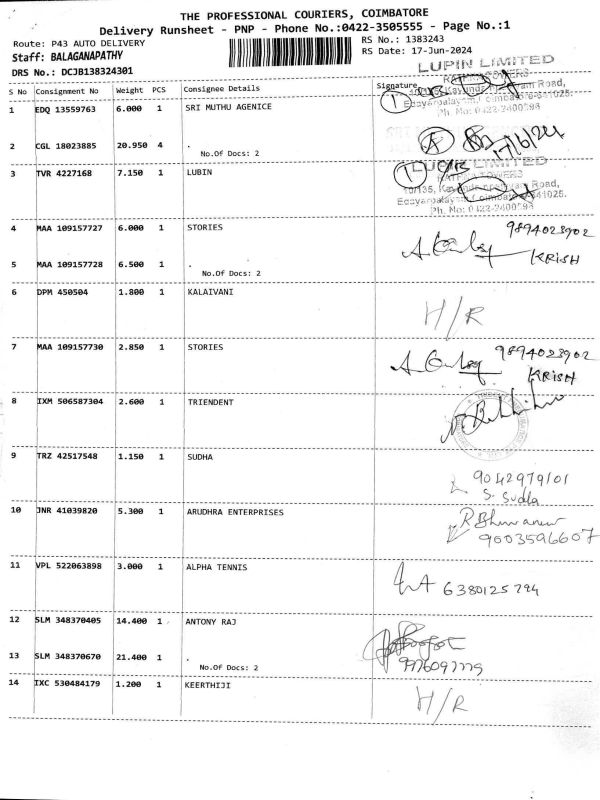 THE PROFESSIONAL COURIERS, COIMBATORE
Delivery Runsheet - PNP - Phone No.:0422-3505555 - Page No.:1
Route: P43 AUTO DELIVERY
RS No.: 1383243
Staff: BALAGANAPATHY
RS Date: 17-Jun-2024
DRS No.: DCJB138324301
LUPIN LIMITED
S No Consignment No Weight PCS Consignee Details Signature
1 EDQ 13559763 6.000 1 SRI MUTHU AGENICE
17/6/24
2 CGL 18023885 20.950 4 .
No.Of Docs: 2
LUPIN LIMITED
3 TVR 4227168 7.150 1 LUBIN
4 MAA 109157727 6.000 1 STORIES
9894023902
KRISH
5 MAA 109157728 6.500 1 .
No.Of Docs: 2
6 DPM 450504 1.800 1 KALAIVANI
H/R
7 MAA 109157730 2.850 1 STORIES
9894023902
KRISH
8 IXM 506587304 2.600 1 TRIENDENT
9 TRZ 42517548 1.150 1 SUDHA
9042979101
S. Sudha
10 JNR 41039820 5.300 1 ARUDHRA ENTERPRISES
9003596607
11 VPL 522063898 3.000 1 ALPHA TENNIS
6380125794
12 SLM 348370405 14.400 1 ANTONY RAJ
13 SLM 348370670 21.400 1 .
No.Of Docs: 2
14 IXC 530484179 1.200 1 KEERTHIJI
H/R